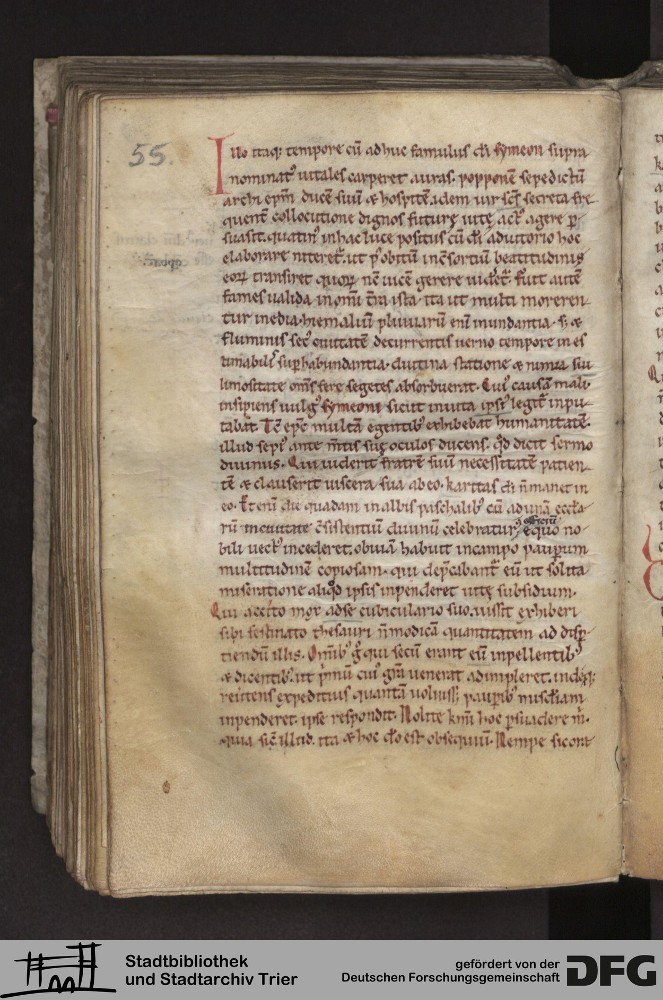 55.
Illo itaq; tempore cū adhuc famulus dī symeon supra
nominat᾽ uitales carperet auras. popponē sepedictū
archi epm̄ ducē suū & hospitē, idem uir scī secreta fre
quent̄ collocutione dignos futurę uitę act᾽ agere p̱
suasit. quatin᾽ in hac luce positus cū dī adiutorio hoc
elaborare niteret̄. ut p᾽ obitū in csortiū beatitudinis
eoꝝ transiret quoꝝ uicē gerere uideret̄. Fuit autē
fames ualida in omī t̄ra ista. ita ut multi moreren
tur inedia. hiemaliū pluuiarū eni᾽ inundantia. s; &
fluminis sec᾽ ciuitatē decurrentis uerno tempore in es
timabili sup̱habundantia. diutina statione & nimia
limositate om̄s fere segetes absorbuerat. Cui᾽ causā mali
insipiens uulg᾽ symeoni sicut in uita ips᾽ legit̄ inpu
tabat. Tc̄ epc̄ multā egentib᾽ exhibebat humanitatē.
illud sep᾽ ante m̄tis suę oculos ducens. qd̄ dicit sermo
diuinus. Qui uiderit fratrē suū necessitatē patien
tē & clauserit uiscera sua ab eo. karitas dī n̄ manet in
eo. Etenī die quadam in albis paschalib᾽ cū adunā eccl̄a
rū in ciuitate c̄sistentiū diuinū celebratur᾽ officiū equo no
bili uect᾽ incederet. obuiā habuit in campo paup̱um
multitudinē copiosam. qui dep̄cabant̄ eū ut solita
miseratione aliqd̄ ipsis inpenderet uitę subsidium.
Qui accito mox adse cubiculario suo. iussit exhiberi
sibi festinato thesauri n̄ modicā quantitatem ad disp̱
tiendū illis. Om̄ib᾽ g᾽ qui secū erant eū inpellentib᾽
& dicentib᾽. ut p᾽mū cui᾽ gr̄a uenerat adimpleret. indeq;
reuertens expeditius quantā uoluiss; paup̱ib᾽ miscd̄iam
inpenderet. ipse respondit. Nolite km̄i hoc p̱suadere m᾽.
quia sic᾽ illud. ita & hoc dō est obsequiū. Nempe sicont
Stadtbibliothek
und Stadtarchiv Trier
gefördert von der
Deutschen Forschungsgemeinschaft
DFG